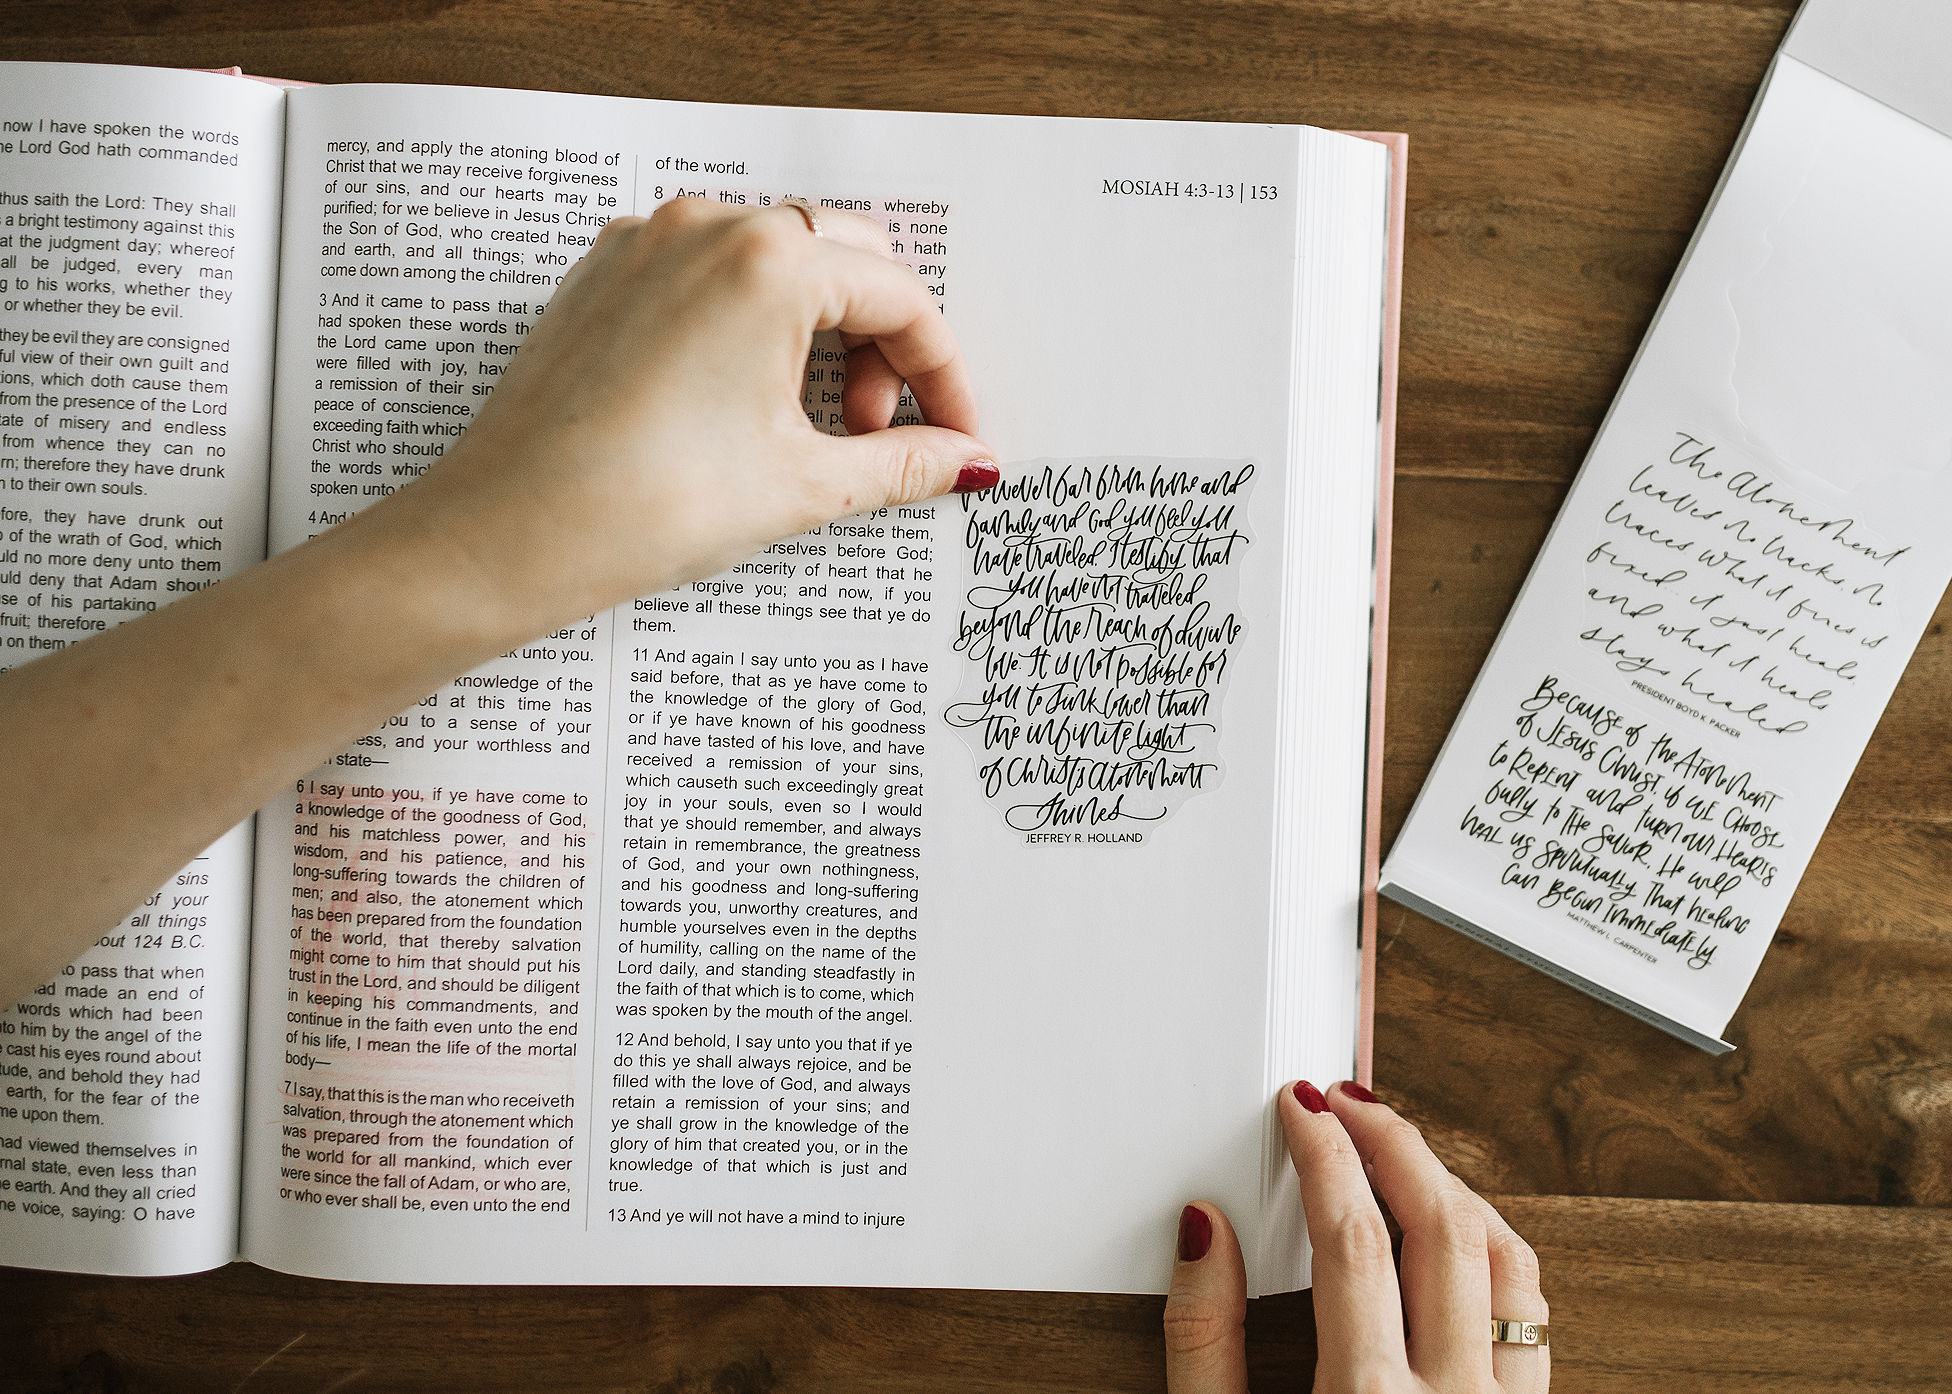 now I have spoken the words
Lord God hath commanded
thus saith the Lord: They shall
a bright testimony against this
at the judgment day; whereof
be judged, every man
to his works, whether they
or whether they be evil.
they be evil they are consigned
view of their own guilt and
which doth cause them
from the presence of the Lord
of misery and endless
from whence they can no
therefore they have drunk
to their own souls.
they have drunk out
of the wrath of God, which
no more deny unto them
deny that Adam should
of his partaking
fruit; therefore,
on them
sins
of your
all things
124 B.C.
to pass that when
had made an end of
words which had been
him by the angel of the
cast his eyes round about
and behold they had
earth, for the fear of the
upon them.
had viewed themselves in
state, even less than
earth. And they all cried
voice, saying: O have
mercy, and apply the atoning blood of
Christ that we may receive forgiveness
of our sins, and our hearts may be
purified; for we believe in Jesus Christ,
the Son of God, who created
and earth, and all things; who
come down among the children
3 And it came to pass that
had spoken these words
the Lord came upon them
were filled with joy,
a remission of their
peace of conscience,
exceeding faith which
Christ who should
the words
spoken unto
4 And
of
unto you.
knowledge of the
at this time has
you to a sense of your
and your worthless and
state—
6 I say unto you, if ye have come to
a knowledge of the goodness of God,
and his matchless power, and his
wisdom, and his patience, and his
long-suffering towards the children of
men; and also, the atonement which
has been prepared from the foundation
of the world, that thereby salvation
might come to him that should put his
trust in the Lord, and should be diligent
in keeping his commandments, and
continue in the faith even unto the end
of his life, I mean the life of the mortal
body—
7 I say, that this is the man who receiveth
salvation, through the atonement which
was prepared from the foundation of
the world for all mankind, which ever
were since the fall of Adam, or who are,
or who ever shall be, even unto the end
of the world.
8 And this is the means whereby
is none
hath
any
all
ye must
forsake them,
before God;
sincerity of heart that he
forgive you; and now, if you
believe all these things see that ye do
them.
11 And again I say unto you as I have
said before, that as ye have come to
the knowledge of the glory of God,
or if ye have known of his goodness
and have tasted of his love, and have
received a remission of your sins,
which causeth such exceedingly great
joy in your souls, even so I would
that ye should remember, and always
retain in remembrance, the greatness
of God, and your own nothingness,
and his goodness and long-suffering
towards you, unworthy creatures, and
humble yourselves even in the depths
of humility, calling on the name of the
Lord daily, and standing steadfastly in
the faith of that which is to come, which
was spoken by the mouth of the angel.
12 And behold, I say unto you that if ye
do this ye shall always rejoice, and be
filled with the love of God, and always
retain a remission of your sins; and
ye shall grow in the knowledge of the
glory of him that created you, or in the
knowledge of that which is just and
true.
13 And ye will not have a mind to injure
MOSIAH 4:3-13 | 153
However far from home and
family and God you feel you
have traveled. I testify that
you have not traveled
beyond the reach of divine
love. It is not possible for
you to sink lower than
the infinite light
of Christ's atonement
shines
JEFFREY R. HOLLAND
The Atonement
leaves no tracks. no
traces what it fixes is
fixed.. it just heals.
and what it heals
stays healed
PRESIDENT BOYD K. PACKER
Because of the Atonement
of Jesus Christ, if we choose
to repent and turn our hearts
fully to the Savior, He will
heal us spiritually That healing
can begin immediately
MATTHEW L. CARPENTER